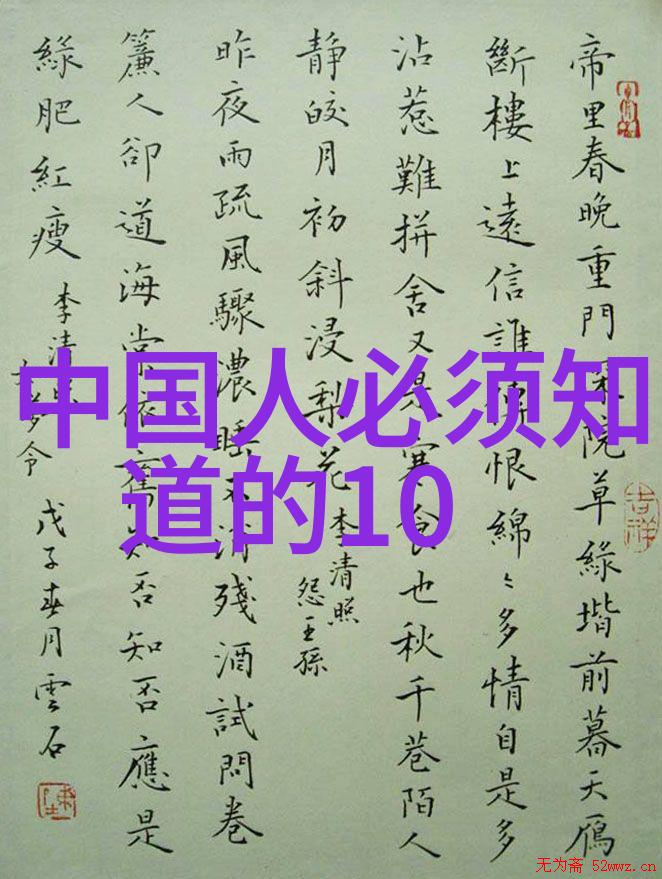 帝里春晚重門深院草緑堦前暮天鴈
斷樓上遠信誰傳恨綿〻多情自是多
沾惹難拼舍又是寒食也秋千巷陌人
静皎月初斜浸梨花 李清照
怨王孫
昨夜雨疏風驟濃睡不消殘酒試問卷
簾人卻道海棠依舊知否知否應是
緑肥紅瘦 李清照
如夢令 戊子春月雲石
吉祥
中国人必须知
道的10
无为斋 52wwz.cn